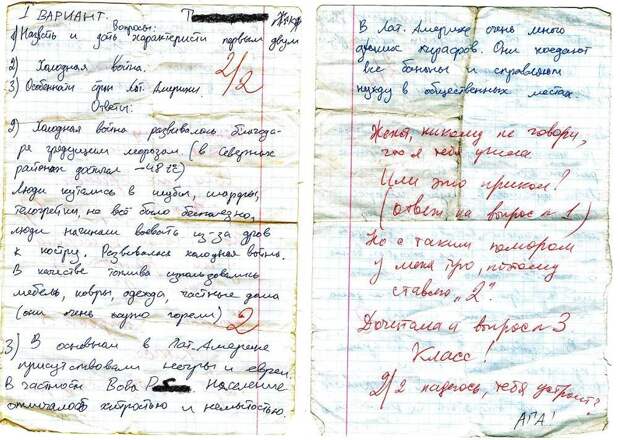 I ВАРИАНТ. Т
Вопросы:
1) Назвать и дать характеристи первым двум
2) Холодная война.
3) Особеннати стран Лат. Америки.
2/2
Ответы:
2) Холодная война развивалась благода-
ря трескучим морозам (в Северных
районах достигал -48°С)
Люди кутались в шубы, шарфы,
телогрейки, но всё было бесполезно,
люди начинали воевать из-за дров
к костру. Развивалася холодная война.
В качестве топлива использовались
мебель, ковры, одежда, частные дома
(они очень жарко горели)
2
3) В основным в Лат. Америке
присутствовали негры и евреи.
В частности Вова Р. Население
отличалось хитростью и немытостью.
В Лат. Америке очень много
диких жирафов. Они поедают
все бананы и справляют
нужду в общественных местах.
Женя, никому не говори,
что я тебя учила
Или это прикол?
(ответ на вопрос п 1)
Но с таким юмором
у меня туго, поэтому
ставлю „2".
Дочитала и вопрос п 3
Класс!
2/2 надеюсь, тебя устроит?
АГА!